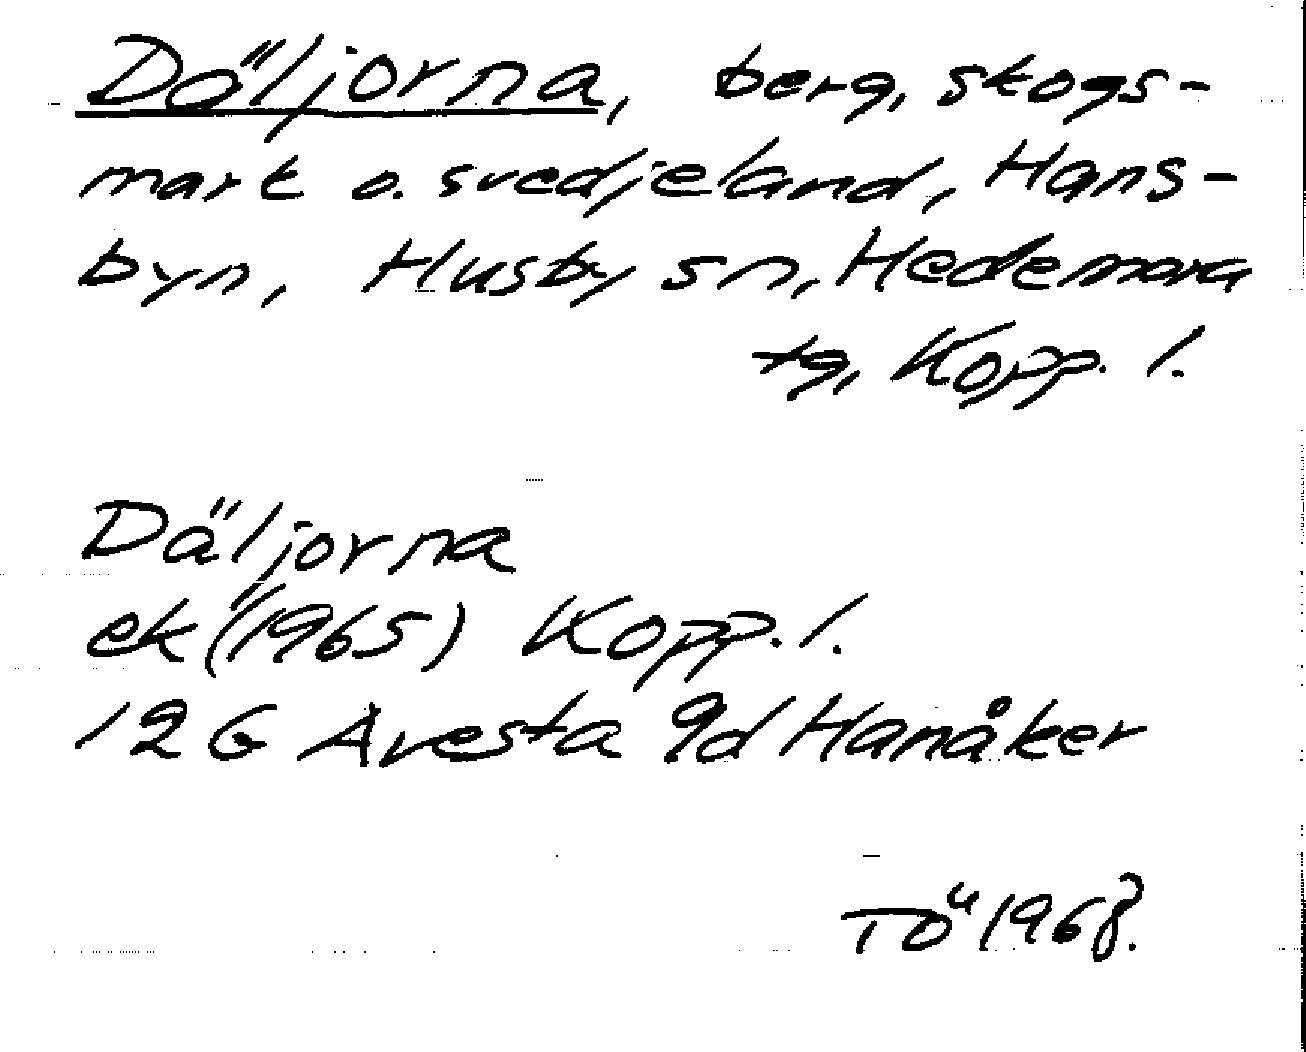 Däljorna, berg, skogs-
mark o. svedjeland, Hans-
byn, Husby sn, Hedemora
tg, Kopp. l.
Däljorna
ek (1965) Kopp. l.
12G Avesta 9d Hanåker
TÖ 1968.